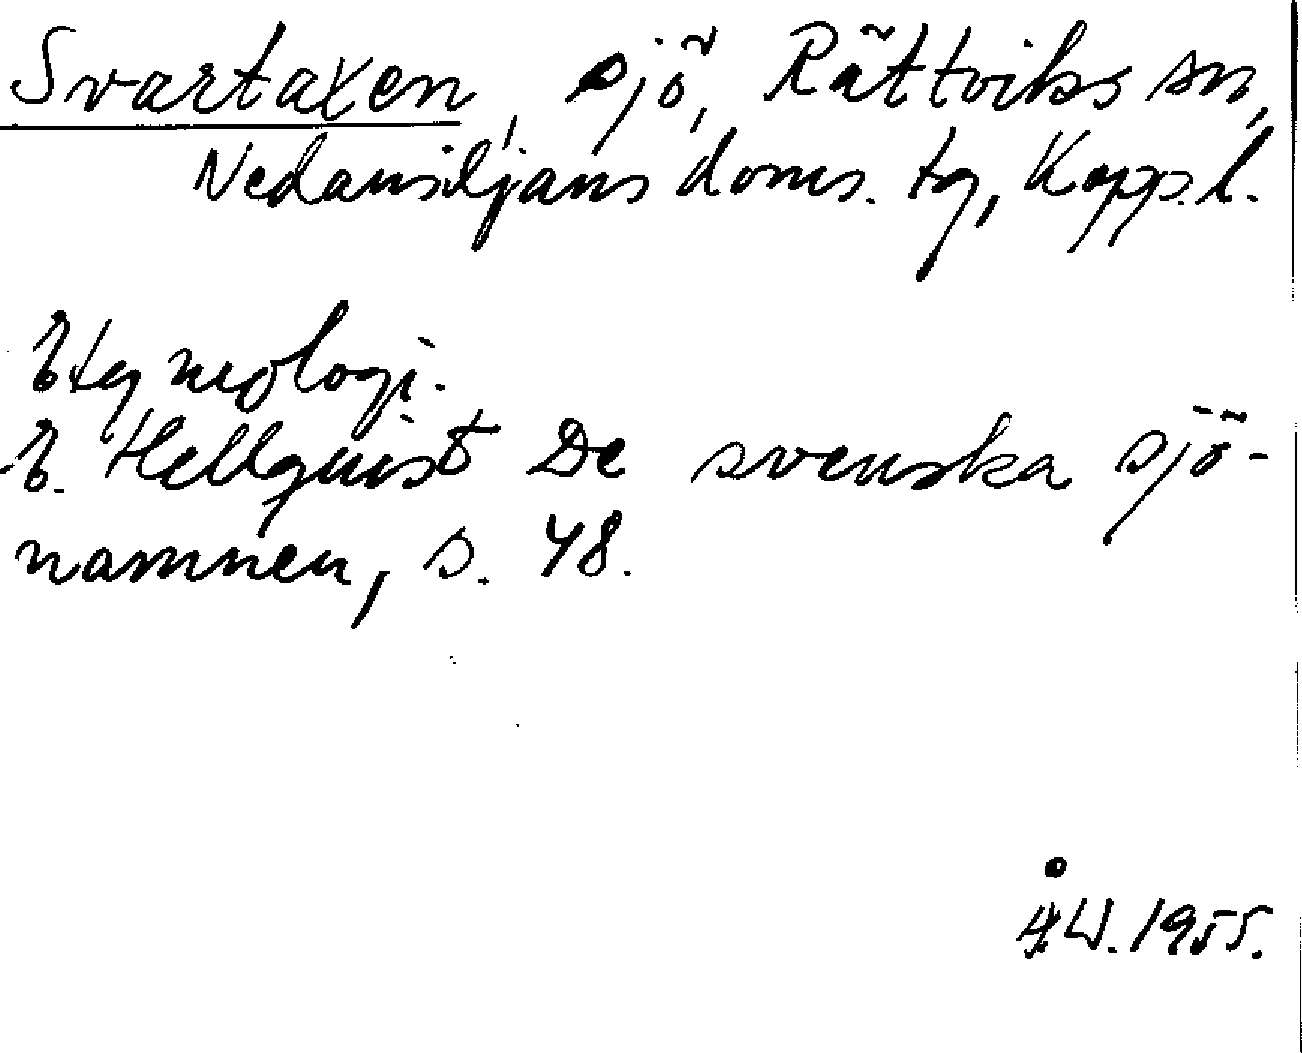 Svartaxen, sjö, Rättviks sn,
Nedansiljans doms. tg, Kopp. l.
Etymologi.
E. Hellquist De svenska sjö-
namnen, s. 48.
Å.W. 1955.